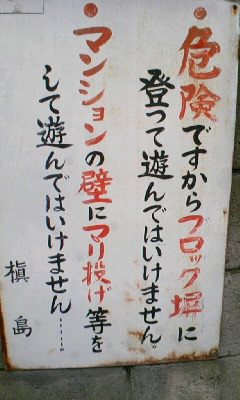 危険ですからブロック塀に
登って遊んではいけません
マンションの壁にマリ投げ等を
して遊んではいけません……
槇島